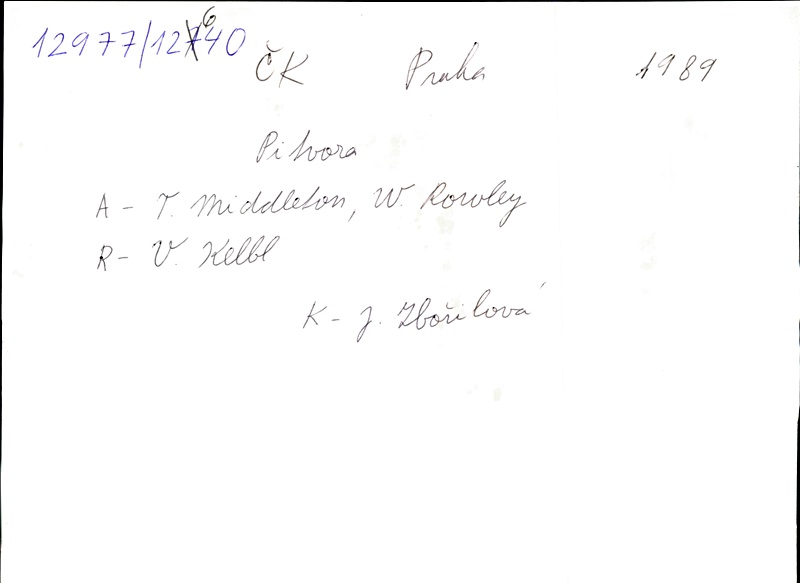 12977/12640
ČK Praha 1989
Pitvora
A - T. Middleton, W. Rowley
R - V. Kelbl
K - J. Zbořilová